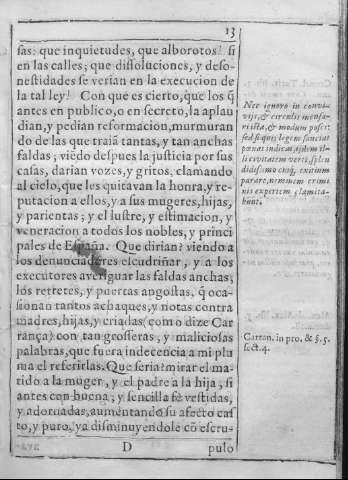 13
sas: que inquietudes, que alborotos! si
en las calles; que dissoluciones, y deso-
nestidades se verian en la execucion de
la tal ley! Con que es cierto, que los q̃
antes en publico, o en secreto, la aplau
dian, y pedian reformacion, murmuran
do de las que traiã tantas, y tan anchas
faldas; viẽdo despues la justicia por sus
casas, darian vozes, y gritos, clamando
al cielo, que les quitavan la honra, y re-
putacion a ellos, y a sus mugeres, hijas,
y parientas; y el lustre, y estimacion, y
veneracion a todos los nobles, y princi
pales de España. Que dirian? viendo a
los denunciadores escudriñar, y a los
executores averiguar las faldas anchas,
los retretes, y puertas angostas, q̃ oca-
sionan tantos achaques, y notas contra
madres, hijas, y criadas (como dize Car
rança) con tan grosseras, y maliciosas
palabras, que fuera indecencia a mi plu
ma el referirlas. Que seria? mirar el ma-
rido a la muger, y el padre a la hija, si
antes con buena, y sencilla fè vestidas,
y adornadas, aumentando su afecto cas
to, y puro, ya disminuyendole cõ escru-
D
pulo
Nec ignoro in convi-
vijs, & circulis
& modum
sed siquis legem sanciat
pœnas indicat, ijdem il-
li civitatem verti, splen
didissimo cuiq; exitium
parare, neminem crimi
nis expertem clamita-
bunt.
Carran. in pro. & §. 5.
sect. 4.